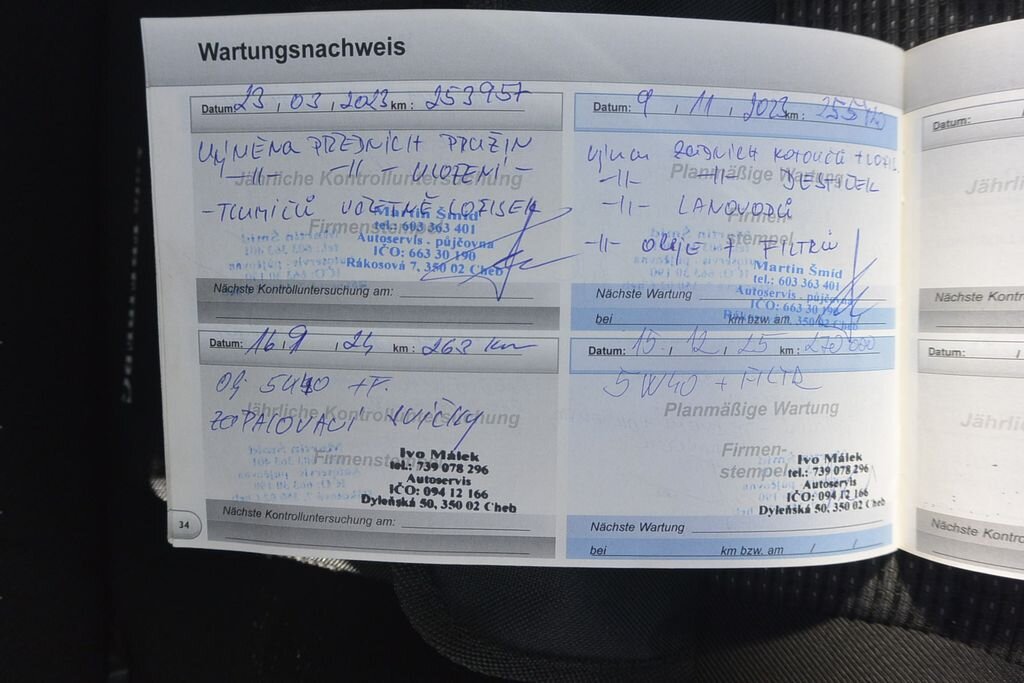 Wartungsnachweis
Datum: 23 . 03 . 2023 km : 253957
VÝMĚNA PŘEDNÍCH PRUŽIN
-||- -||- ULOŽENÍ -
Jährliche Kontrolluntersuchung
- TLUMIČŮ VČETNĚ LOŽISEK
Firmenstempel
Martin Šmíd
tel.: 603 363 401
Autoservis - půjčovna
IČO: 663 30 190
Rákosová 7, 350 02 Cheb
Nächste Kontrolluntersuchung am:
Datum: 9 . 11 . 2023 km :
ZADNÍCH KOTOUČŮ +
-||- -||- DESTIČEK
Planmäßige Wartung
-||- LANOVODŮ
Firmen-
stempel
-||- OLEJE + FILTRŮ
Martin Šmíd
tel.: 603 363 401
Autoservis - půjčovna
IČO: 663 30 190
Rákosová 7, 350 02 Cheb
Nächste Wartung
bei km bzw. am
Datum: 16 9 . 24 km : 263 km
5W40 + F.
Jährliche Kontrolluntersuchung
ZAPALOVACÍ SVÍČKY
Firmenstempel
Ivo Málek
tel.: 739 078 296
Autoservis
IČO: 094 12 166
Dyleňská 50, 350 02 Cheb
Nächste Kontrolluntersuchung am:
Datum: 15 . 12 . 25 km : 270 000
5W40 + FILTR
Planmäßige Wartung
Firmen-
stempel
Ivo Málek
tel.: 739 078 296
Autoservis
IČO: 094 12 166
Dyleňská 50, 350 02 Cheb
Nächste Wartung
bei km bzw. am / /
34
Datum:
Jährli
Nächste Kontr
Datum:
Jährli
Nächste Kontr